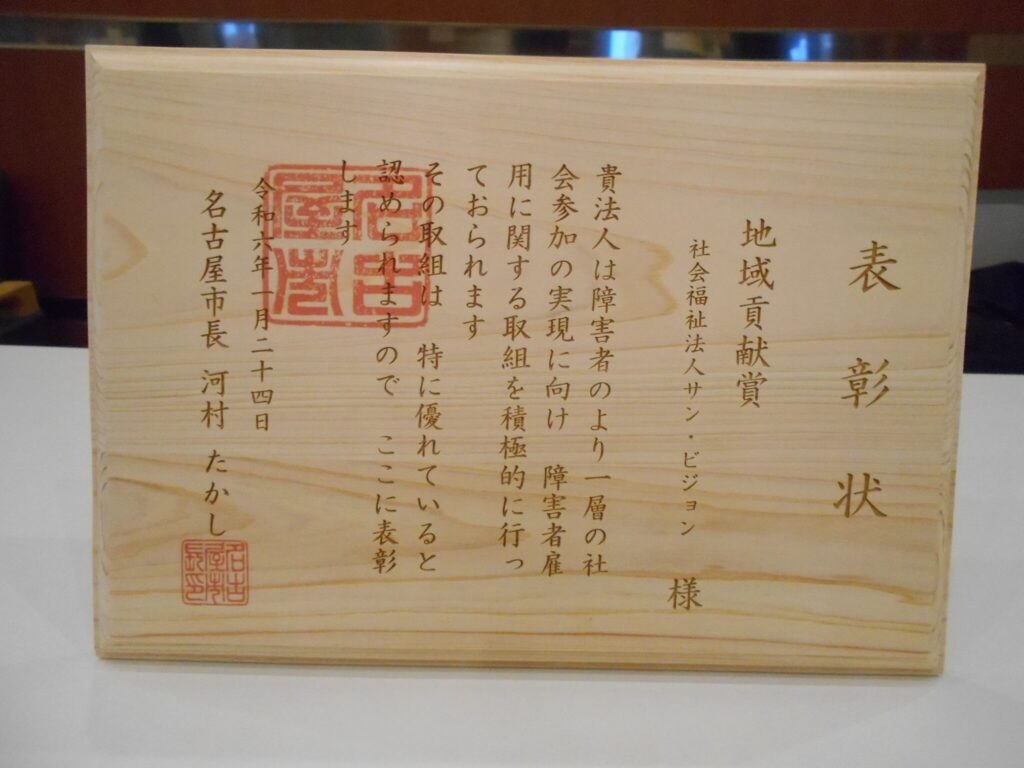 表彰状
地域貢献賞
社会福祉法人サン・ビジョン
様
貴法人は障害者のより一層の社
会参加の実現に向け 障害者雇
用に関する取組を積極的に行っ
ておられます
その取組は 特に優れていると
認められますので ここに表彰
します
令和六年一月二十四日
名古屋市長 河村 たかし
名古屋市
名古屋市長印